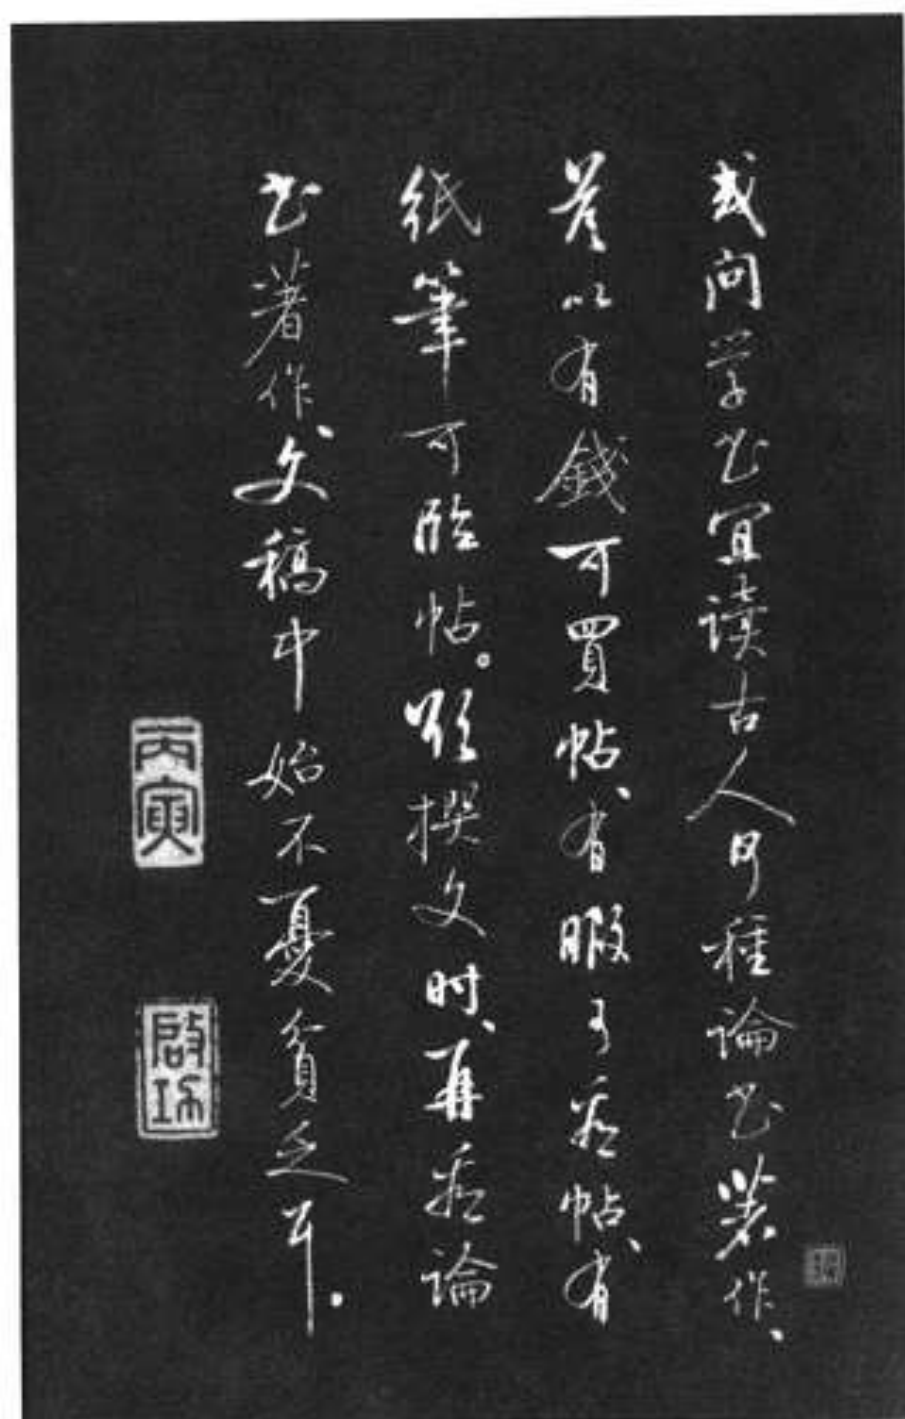 或问学书宜读古人何種論书著作、
答以有錢可買帖、有暇可看帖、有
紙筆可臨帖。欲撰文时、再看論
书著作、文稿中始不憂貧乏耳。
丙寅
啟功